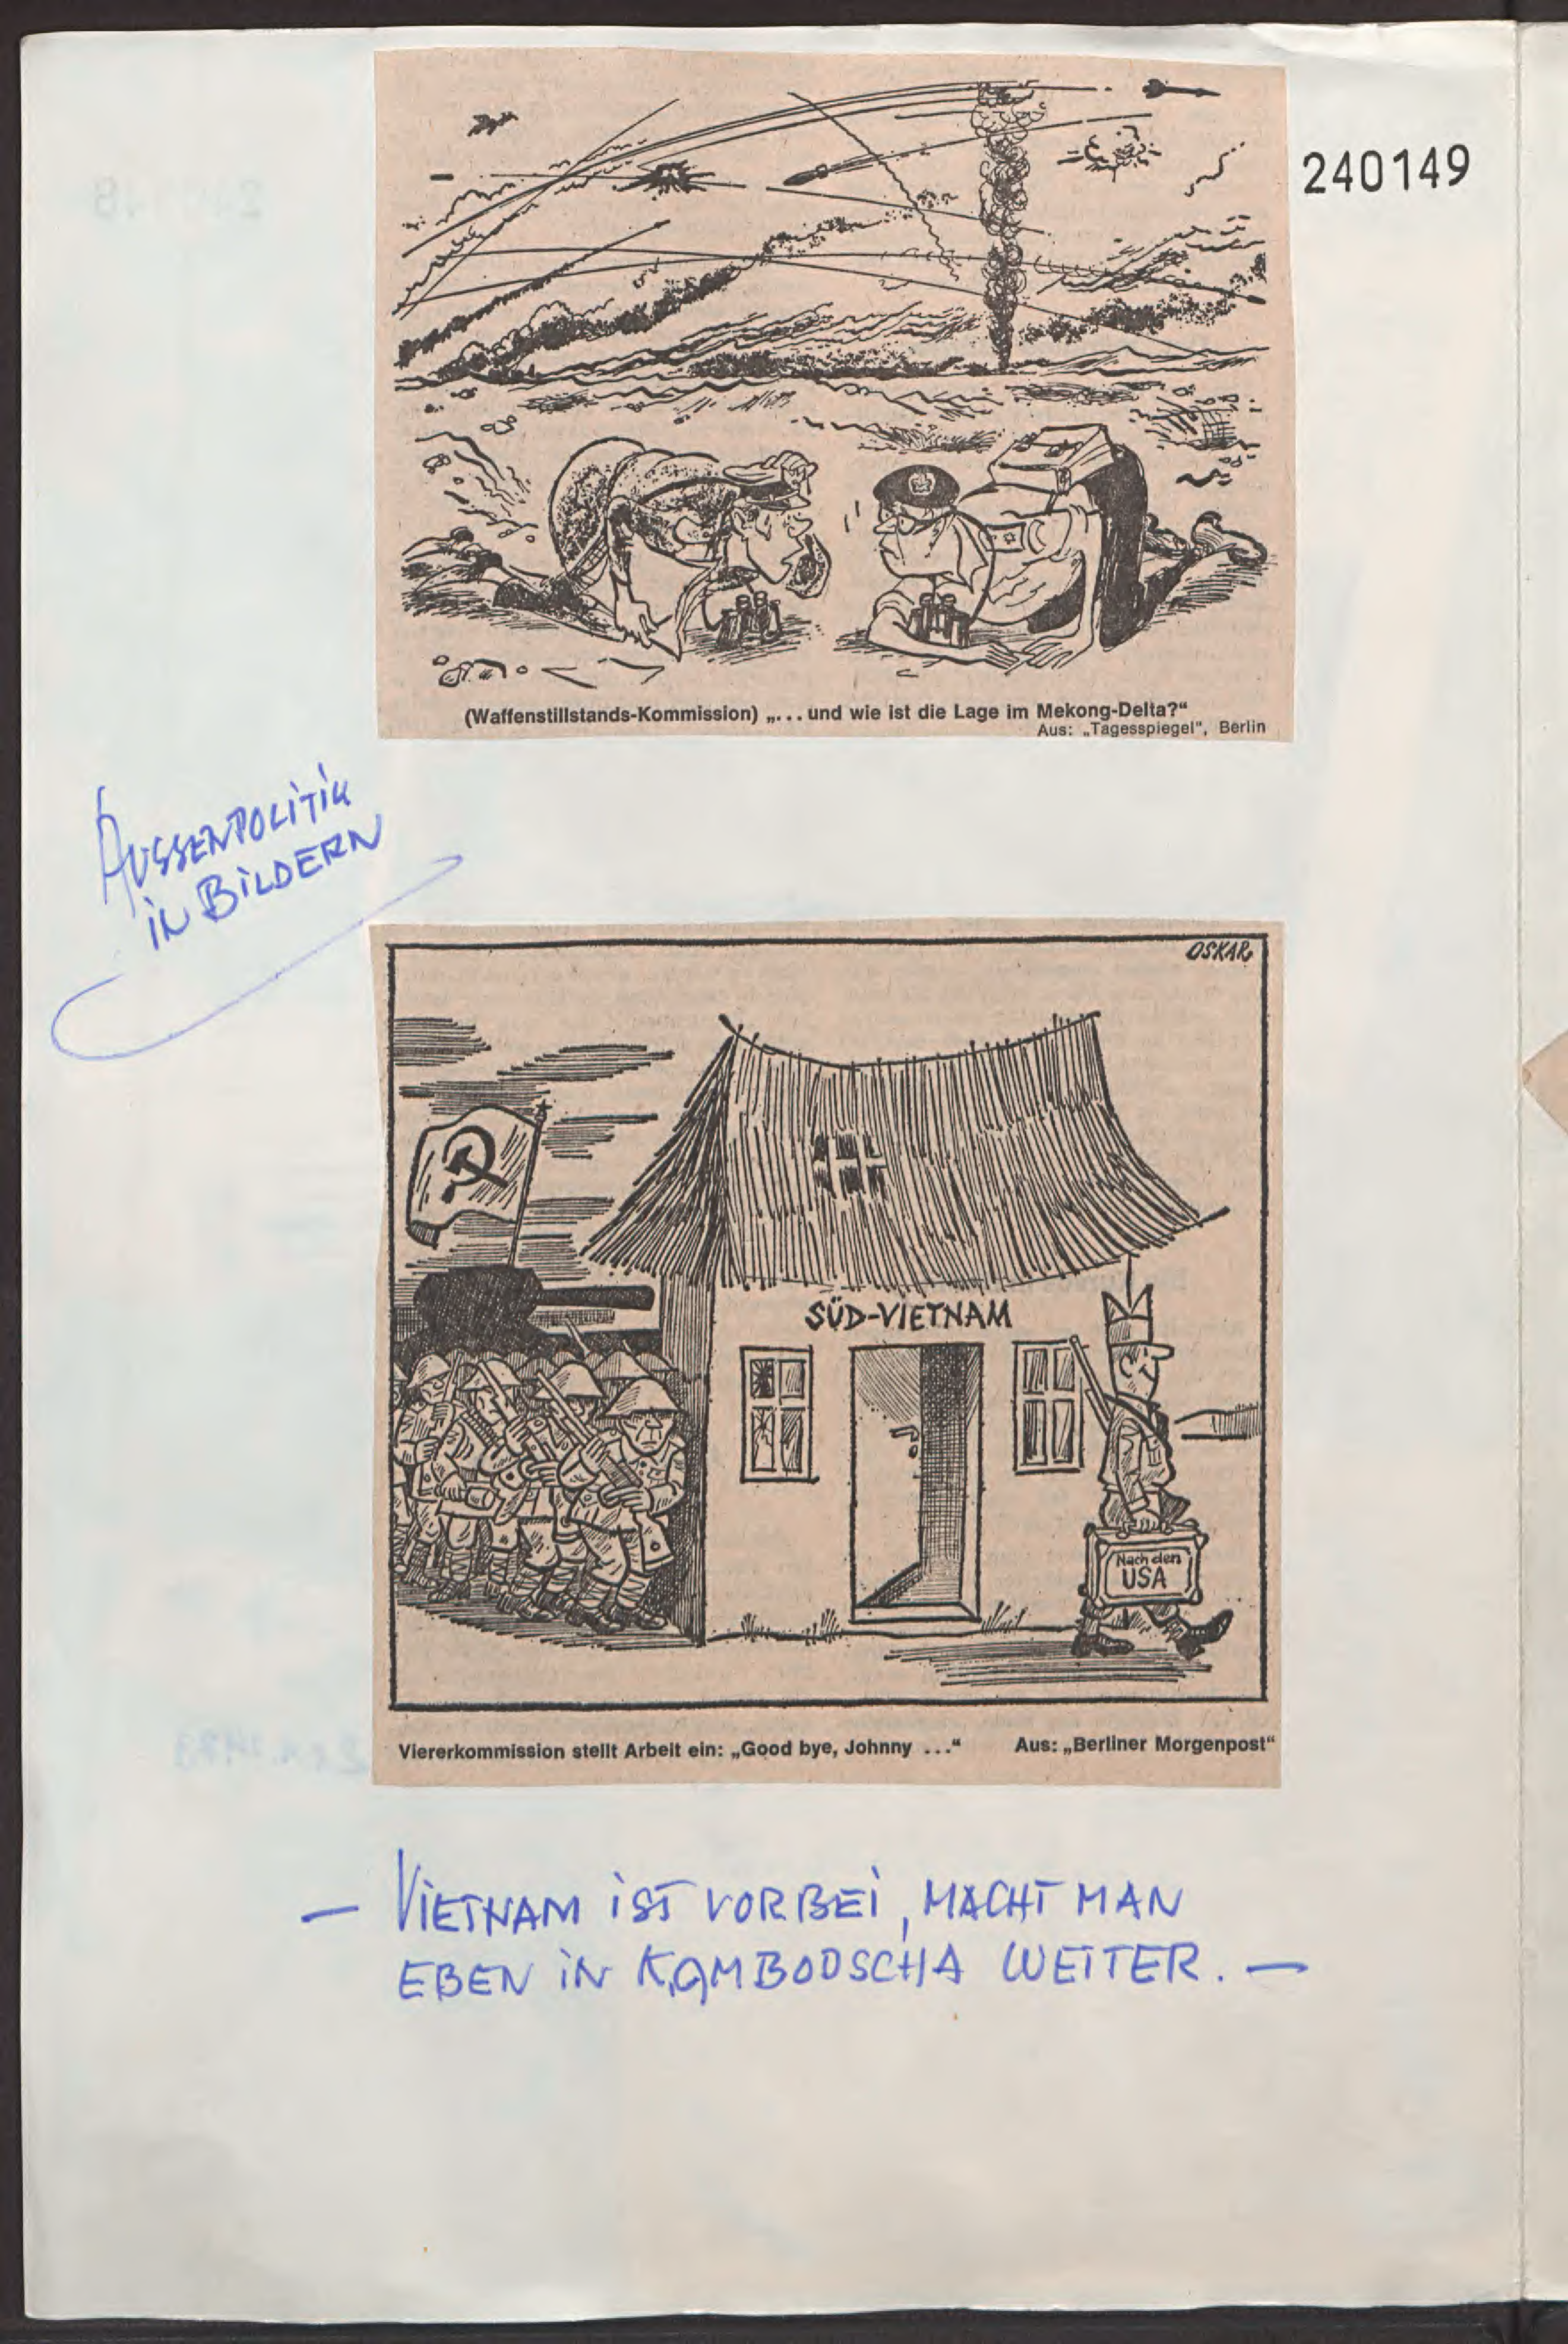 240149
(Waffenstillstands-Kommission) „... und wie ist die Lage im Mekong-Delta?“
Aus: „Tagesspiegel“, Berlin
AUSSENPOLITIK
IN BILDERN
OSKAR
SÜD-VIETNAM
Nach den
USA
Viererkommission stellt Arbeit ein: „Good bye, Johnny ...“ Aus: „Berliner Morgenpost“
— VIETNAM IST VORBEI, MACHT MAN
EBEN IN KAMBODSCHA WEITER. —